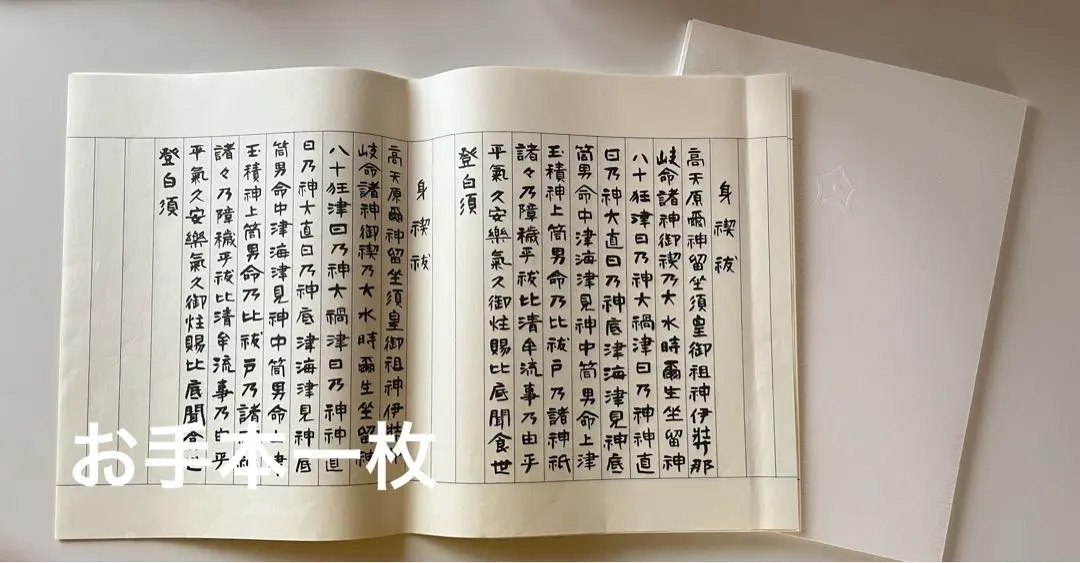 身禊祓
高天原爾神留坐須皇御祖神伊弉那
岐命諸神御禊乃大水時爾生坐留神
八十狂津日乃神大禍津日乃神神直
日乃神大直日乃神底津海津見神底
筒男命中津海津見神中筒男命上津
玉積神上筒男命乃比祓戸乃諸神祇
諸々乃障穢乎祓比清牟流事乃由乎
平氣久安樂氣久御炷賜比底聞食世
登白須
身禊祓
高天原爾神留坐須皇御祖神伊弉
岐命諸神御禊乃大水時爾生坐留神
八十狂津日乃神大禍津日乃神神直
日乃神大直日乃神底津海津見神底
筒男命中津海津見神中筒男命
玉積神上筒男命乃比祓戸乃諸
諸々乃障穢乎祓比清牟流事乃由乎
平氣久安樂氣久御炷賜比底聞食
登白須
お手本一枚